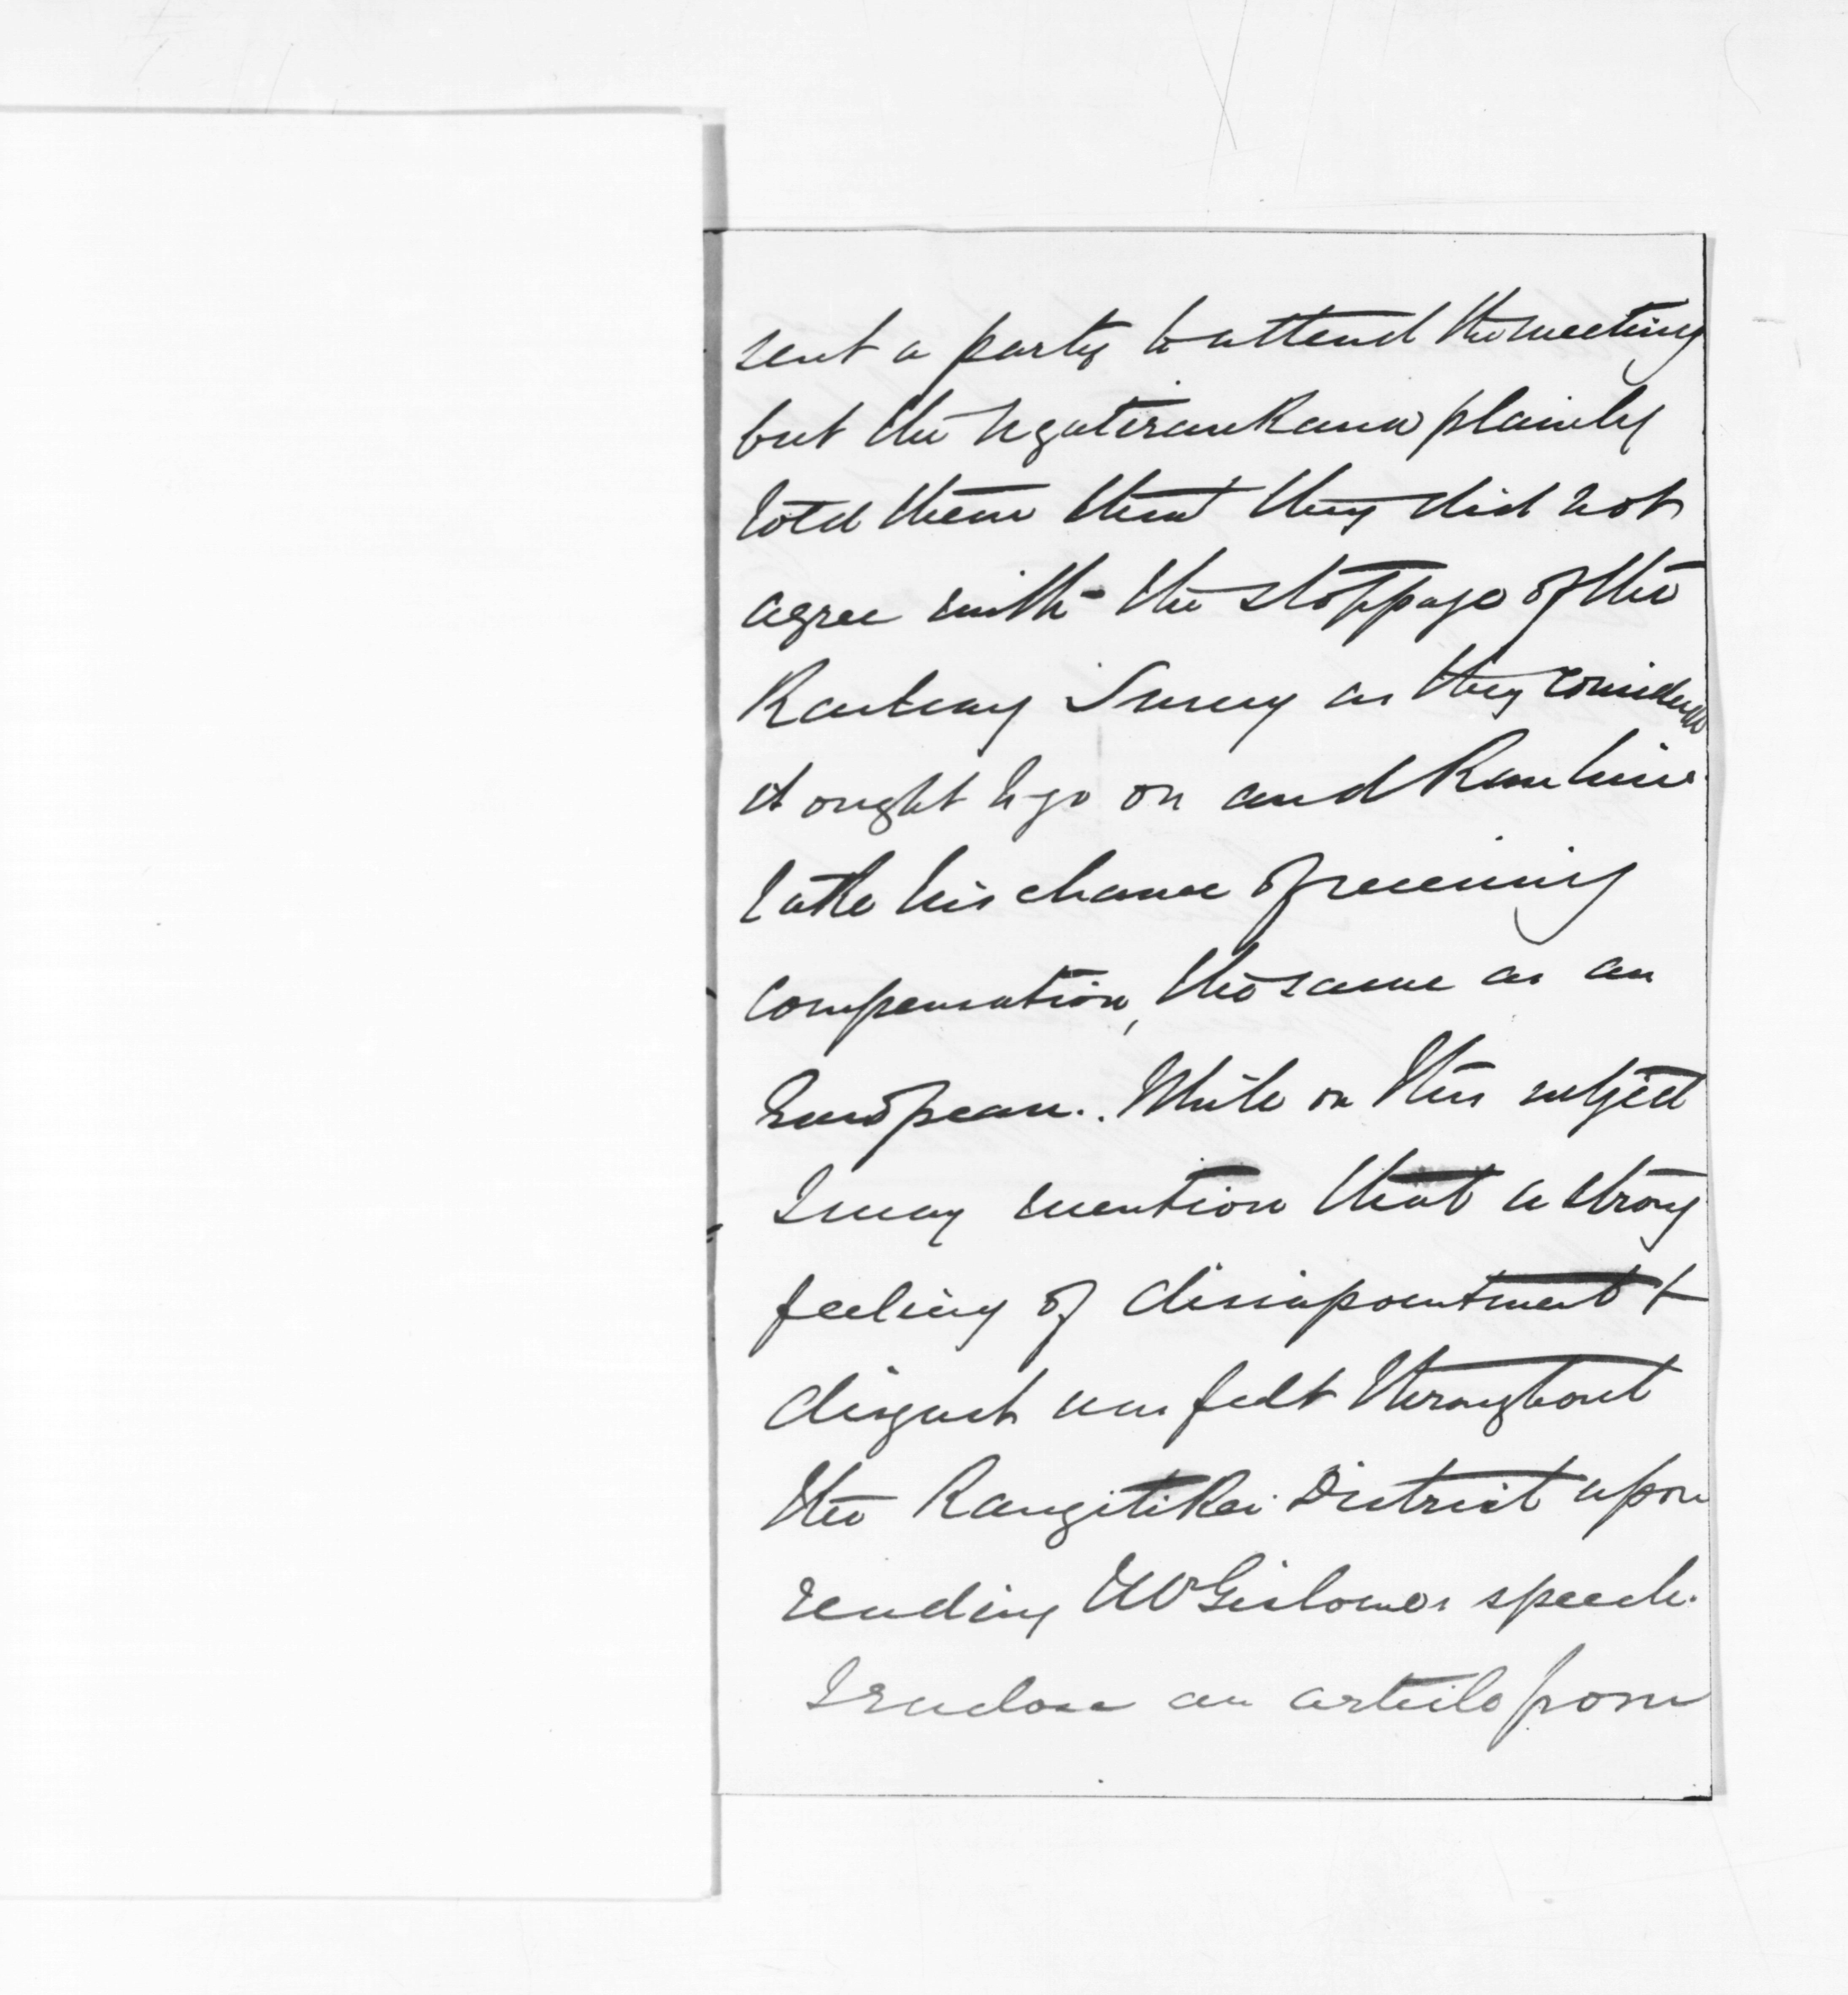 sent a party to attend the meeting
but the Ngatiraukawa plainly
told them that they did not
agree with the stoppage of the
Railway Survey as they considered
it ought to go on and
take his chance of receiving
compensation, the same as an
European. While on this subject
I may mention that a strong
feeling of dissapointment &
disgust was felt throughout
the Rangitikei District upon
reading Mr Gisbornes speech.
I enclose an article from